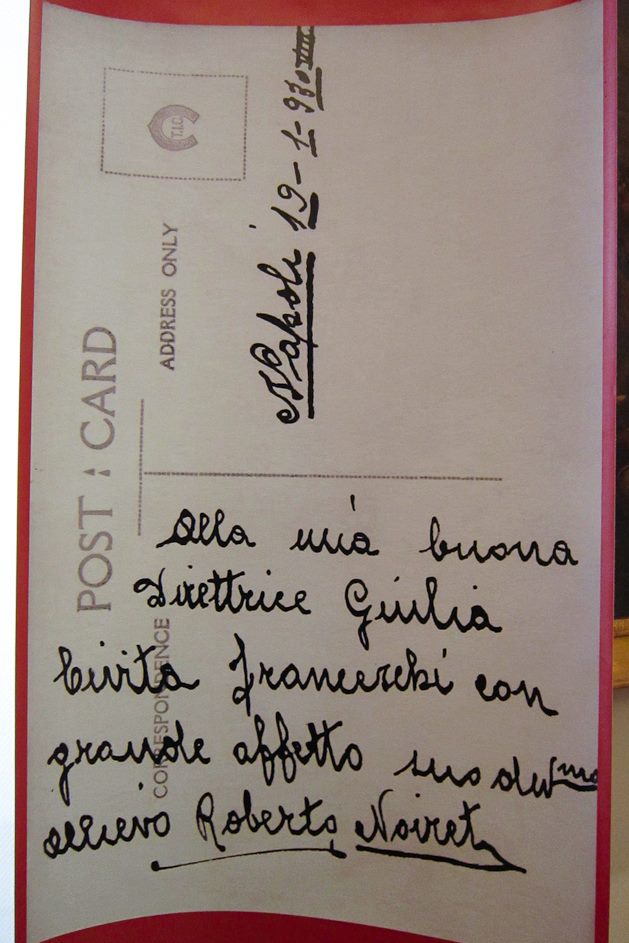 POST CARD
CORRESPONDENCE
ADDRESS ONLY
T.I.C.
Napoli 19-1-930
Alla mia buona
Direttrice Giulia
Civita Franceschi con
grande affetto suo dev/mo
allievo Roberto Noiret